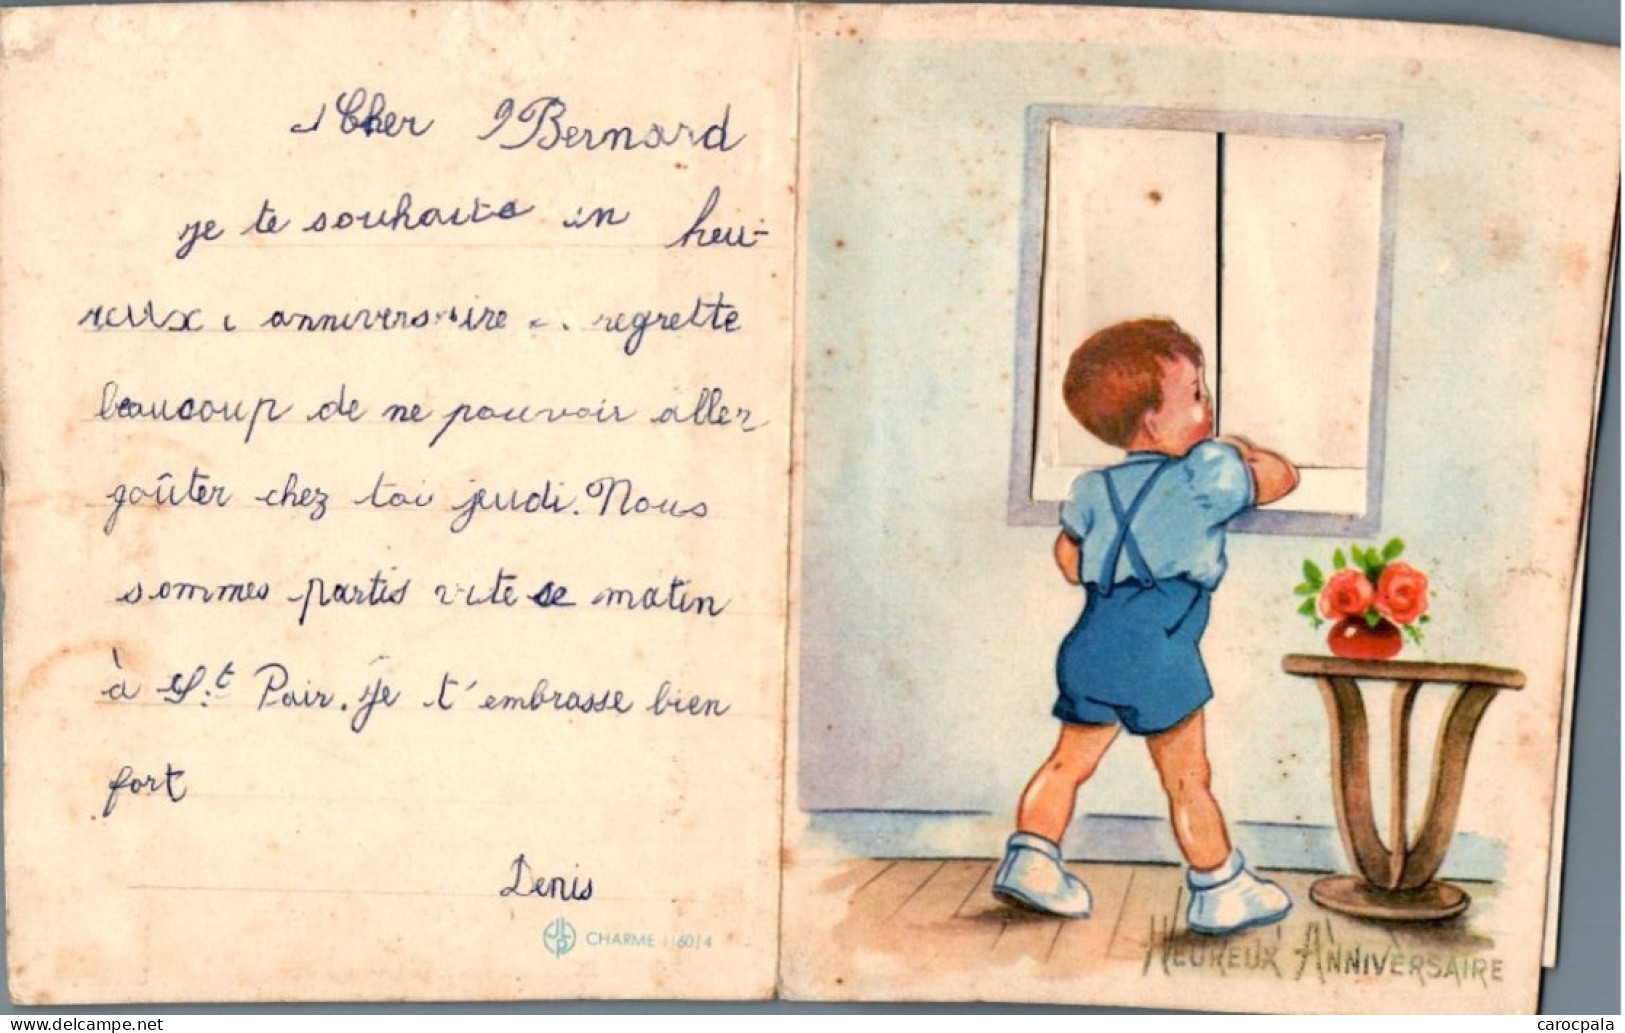 Cher Bernard
je te souhaite un heu-
reux anniversaire regrette
beaucoup de ne pouvoir aller
goûter chez toi jeudi. Nous
sommes partis vite ce matin
à St. Pair. Je t'embrasse bien
fort
Denis
CHARME 1160/4
HEUREUX ANNIVERSAIRE
www.delcampe.net
carocpala